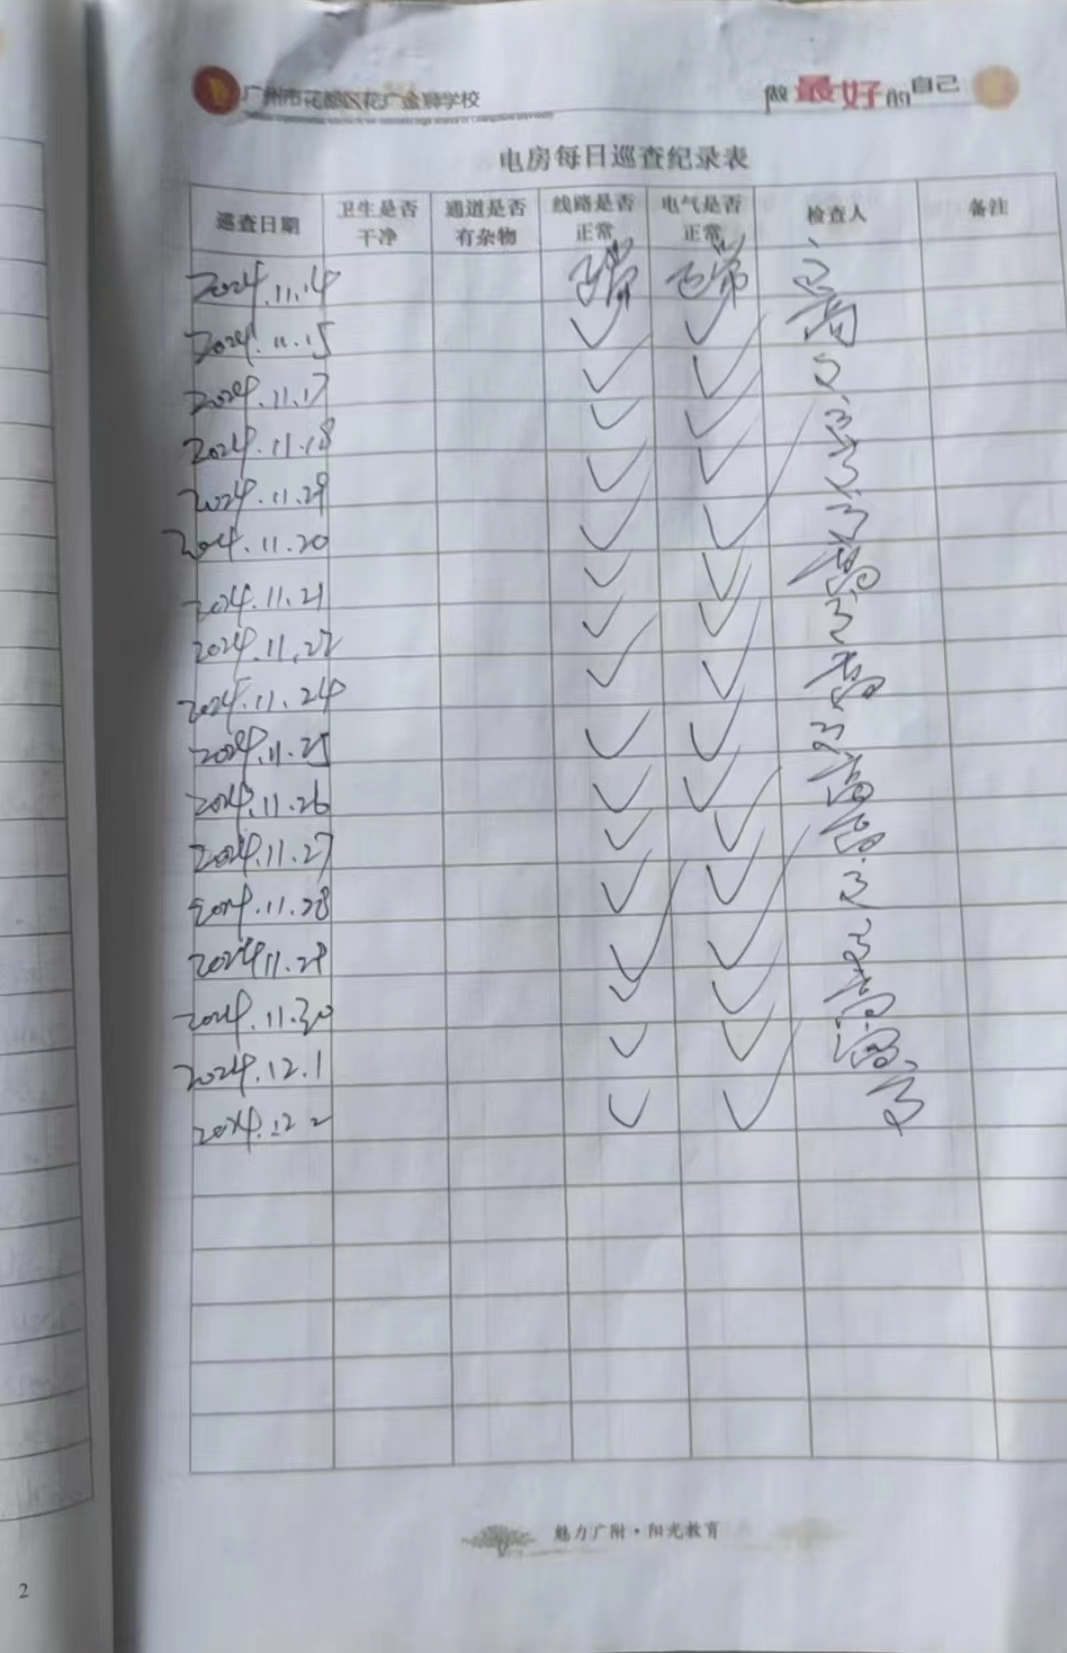 广州市花都区花广金狮学校
做最好的自己
电房每日巡查纪录表
巡查日期 卫生是否干净 通道是否有杂物 线路是否正常 电气是否正常 检查人 备注
2024.11.14 正常 正常
2024.11.15 ✓ ✓
2024.11.17 ✓ ✓
2024.11.18 ✓ ✓
2024.11.29 ✓ ✓
2024.11.20 ✓ ✓
2024.11.21 ✓ ✓
2024.11.22 ✓ ✓
2024.11.24 ✓ ✓
2024.11.25 ✓ ✓
2024.11.26 ✓ ✓
2024.11.27 ✓ ✓
2024.11.28 ✓ ✓
2024.11.29 ✓ ✓
2024.11.30 ✓ ✓
2024.12.1 ✓ ✓
2024.12.2 ✓ ✓
魅力广附·阳光教育
2